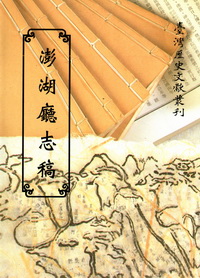 臺灣歷史文獻叢刊
澎湖廳志稿